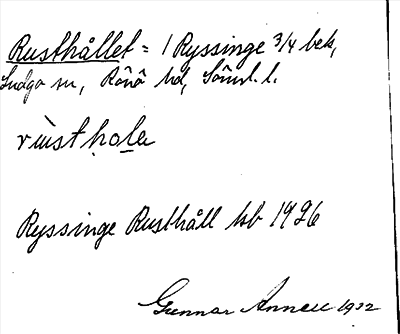 Rusthållet = 1 Ryssinge 3/4 bek,
Ludgo sn, Rönö hd, Söml. l.
rùsthọlạ
Ryssinge Rusthåll hb 1926
Gunnar Annell 1932